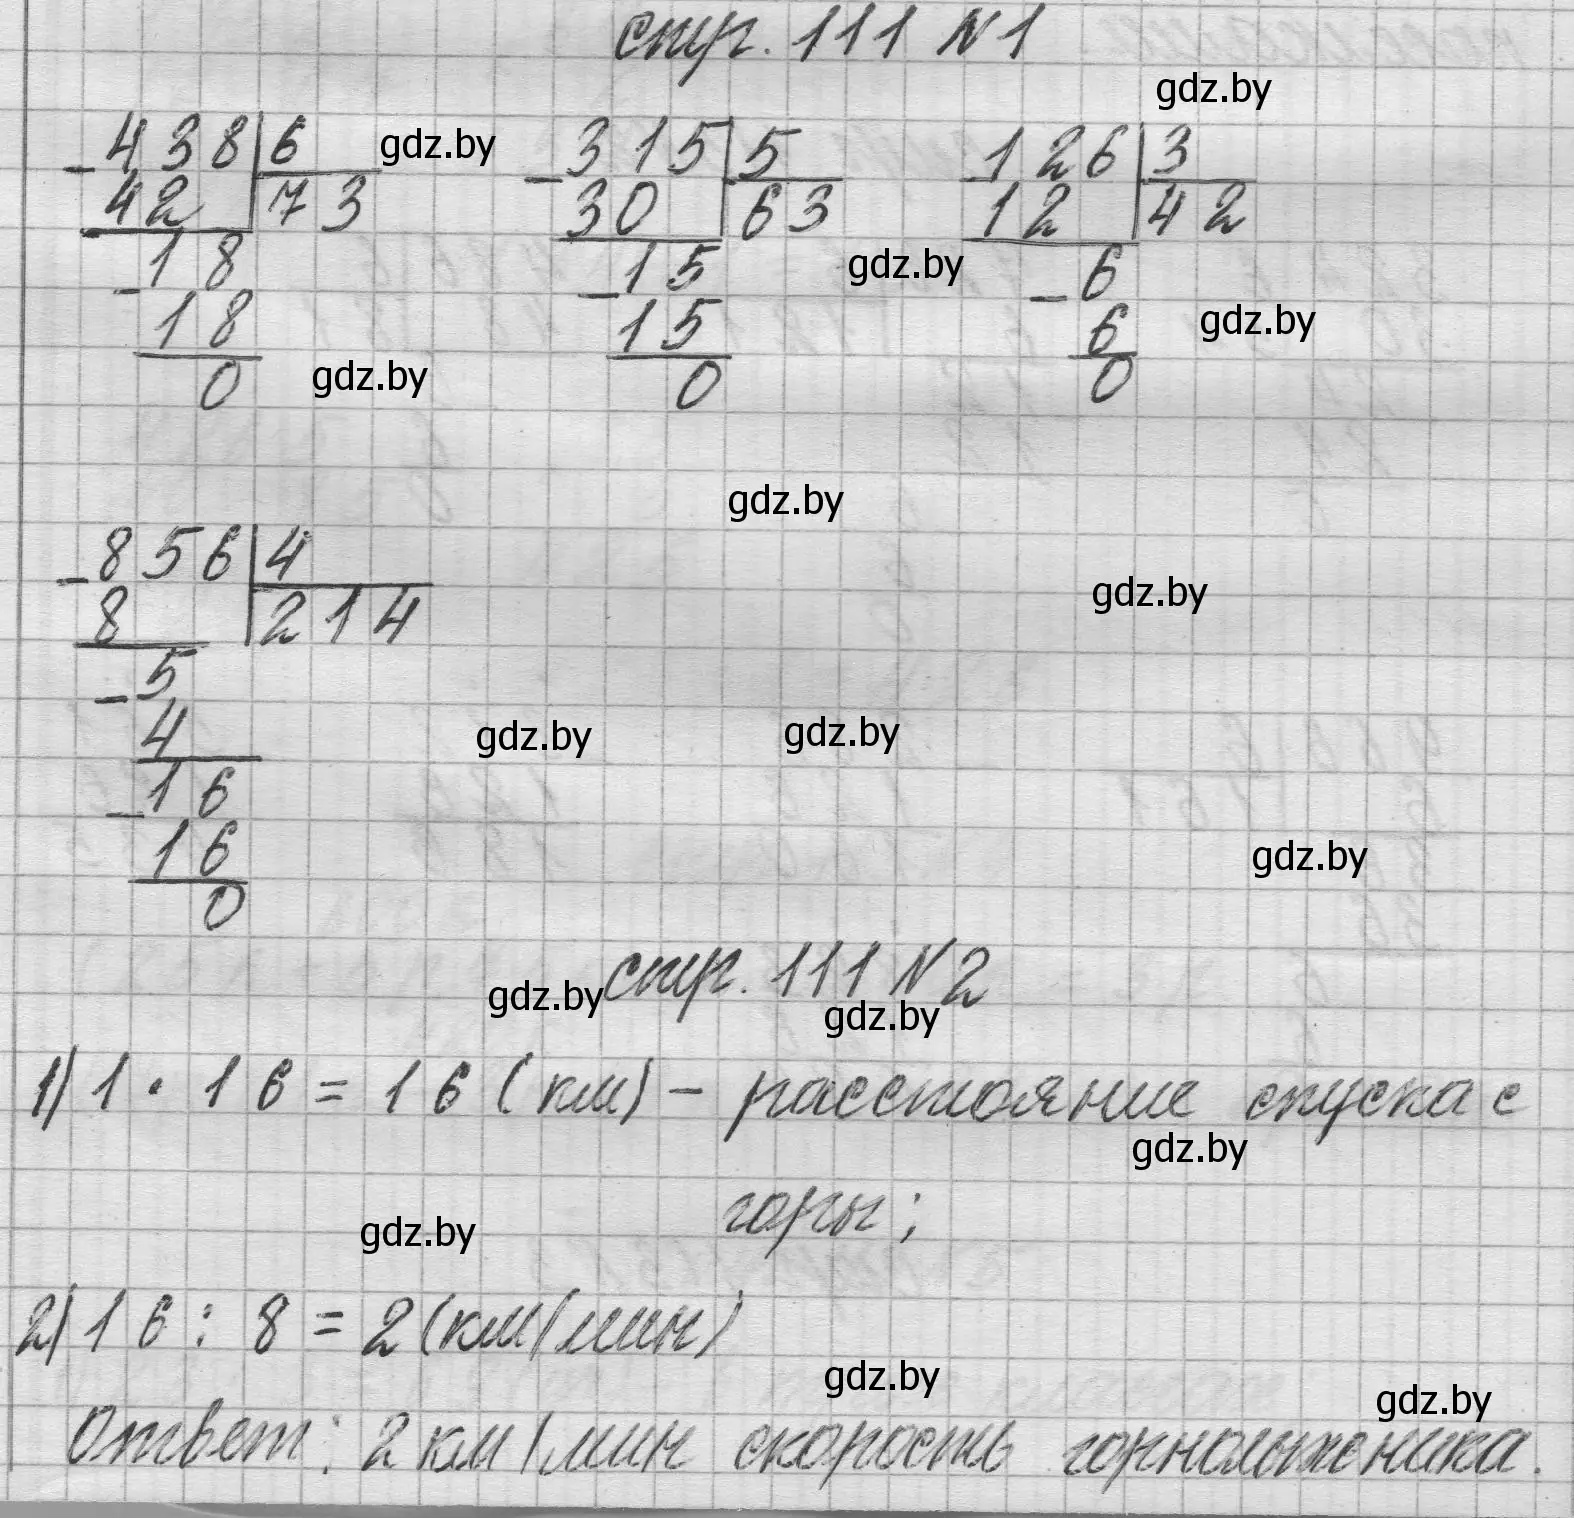 стр. 111 №1
gdz.by
- 438 | 6
42 | 73
- 18
18
0
gdz.by
gdz.by
- 315 | 5
30 | 63
- 15
15
0
gdz.by
- 126 | 3
12 | 42
- 6
6
0
gdz.by
gdz.by
- 856 | 4
8 | 214
- 5
4
- 16
16
0
gdz.by
gdz.by
gdz.by
gdz.by
стр. 111 №2
gdz.by
gdz.by
1) 1 · 16 = 16 (км) – расстояние спуска с
gdz.by
горы;
gdz.by
2) 16 : 8 = 2 (км/мин)
gdz.by
gdz.by
Ответ: 2 км/мин скорость горнолыжника.